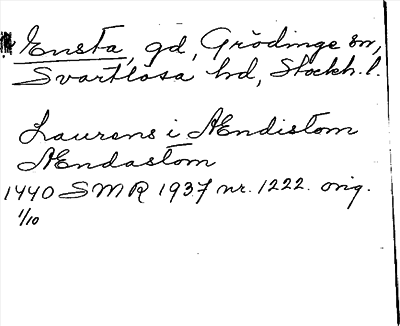 Ensta, gd, Grödinge sn,
Svartlösa hd, Stockh. l.
Laurens i Ændistom
Ændastom
1440 SMR 1937 nr. 1222. orig.
1/10